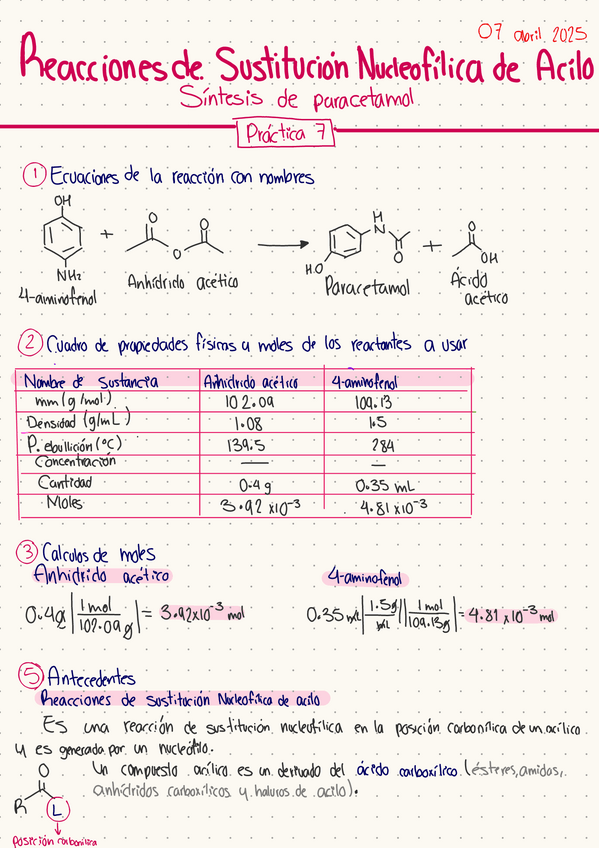 07 abril 2025
Reacciones de Sustitución Nucleofílica de Acilo
Síntesis de paracetamol
Práctica 7
1 Ecuaciones de la reacción con nombres
OH
NH2
4-aminofenol
+
O O
O
Anhídrido acético
H
N
O
HO
Paracetamol
+
O
OH
Ácido
acético
2 Cuadro de propiedades físicas y moles de los reactantes a usar
Nombre de sustancia Anhídrido acético 4-aminofenol
mm (g/mol) 102.09 109.13
Densidad (g/mL) 1.08 1.5
P. ebullición (°C) 139.5 284
Concentración — —
Cantidad 0.4 g 0.35 mL
Moles 3.92 x10-3 4.81 x10-3
3 Calculos de moles
Anhídrido acético
0.4g | 1 mol / 102.09 g | = 3.92x10-3 mol
4-aminofenol
0.35 mL | 1.5g / mL || 1 mol / 109.13g | = 4.81 x10-3 mol
5 Antecedentes
Reacciones de sustitución Nucleofílica de acilo
Es una reacción de sustitución nucleofílica en la posición carbonílica de un acílico
y es generada por un nucleófilo.
Un compuesto acílico es un derivado del ácido carboxílico (ésteres, amidas,
anhídridos carboxílicos y haluros de acilo).
O
R L
Posición carbonílica